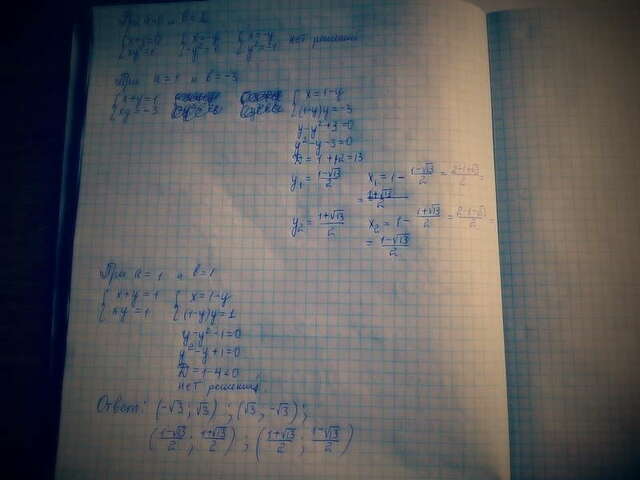 При a=0 и b=1
{x+y=0 {x=-y {x=-y нет решений
{xy=1 {-y²=1 {y²=-1
При a=1 и b=-3
{x+y=1 {x=1-y
{xy=-3 {(1-y)y=-3
y-y²+3=0
y²-y-3=0
D=1+12=13
y₁=(1-√13)/2 x₁=1-(1-√13)/2=(2-1+√13)/2=
=(1+√13)/2
y₂=(1+√13)/2 x₂=1-(1+√13)/2=(2-1-√13)/2=
=(1-√13)/2
При a=1 и b=1
{x+y=1 {x=1-y
{xy=1 {(1-y)y=1
y-y²-1=0
y²-y+1=0
D=1-4<0
нет решений
Ответ: (-√3; √3); (√3; -√3);
((1-√13)/2; (1+√13)/2); ((1+√13)/2; (1-√13)/2)